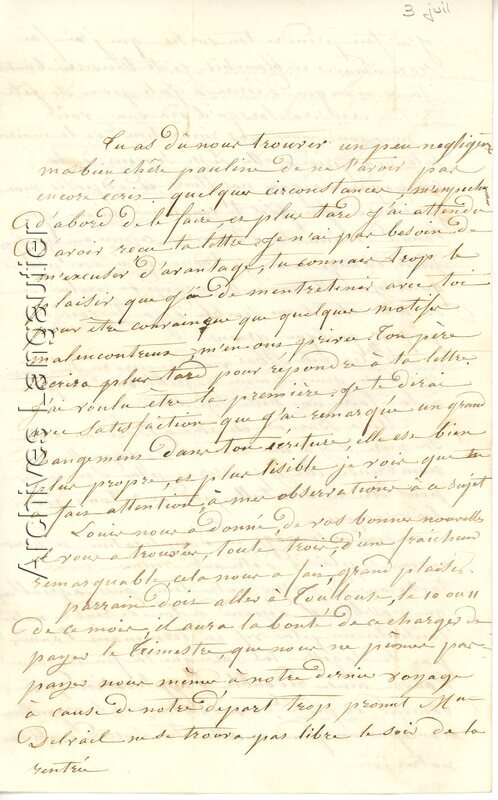 3 juil
Tu as du nous trouver un peu negligens
ma bien chère pauline de ne t'avoir pas
encore écris. quelques circonstances, m'empecha
d'abord de le faire, et plus tard j'ai attendu
d'avoir reçu ta lettre. Je n'ai pas besoin de
m'excuser d'avantage, tu connais trop le
plaisir que j'ai de m'entretenir avec toi
pour être convaincue que quelques motifs
malencontreux, m'en ons privée. Ton père
écrira plus tard pour repondre à ta lettre
j'ai voulu être la première. Je te dirai
avec satisfaction que j'ai remarqué un grand
changemens dans ton écriture, elle est bien
plus propre, et plus lisible je vois que tu
fais attention, à mes observations à ce sujet
Louis nous a donné, de vos bonnes nouvelles
il vous a trouvées, toute trois, d'une fraicheur
remarquable, cela nous a fais, grand plaisir.
parrain dois aller à Toulouse, le 10 ou 11
de ce mois, il aura la bonté de ce charger de
payer le Trimestre, que nous ne pûmes pas
payer nous même à notre dernier voyage
à cause de notre départ trop promt Me
Delrail ne se trouva pas libre le soir de la
rentrée
Archives Langautier